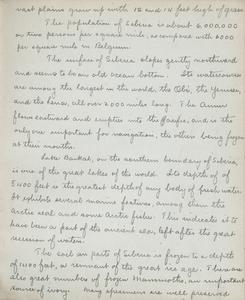 vast plains grown up with 12 and 14 feet high of grass
The population of Siberia is about 6,000,000
or two persons per square mile, as compared with 6000
per square mile in Belgium
The surface of Siberia slopes gently northward
and seems to be an old ocean bottom. Its watercourses
are among the longest in the world, the Obi, Yenesei,
and the Lena, all over 2000 miles long. The Amur
flows eastward and empties into the Pacific, and is the
only one important for navigation, the others being frozen
at their mouths.
Lake Baikal, on the southern boundary of Siberia,
is one of the great lakes of the world. Its depth of
5400 feet is the greatest depth of any body of fresh water.
It exhibits several marine features, among them the
Arctic seal and some Arctic fishes. This indicates it to
have been a part of the ancient sea, left after the great
recession of waters.
The soil in parts of Siberia is frozen to a depth
of 1400 feet, a remnant of the great ice age. There are
also great numbers of frozen Mammoths, an important
source of ivory. Many specimens are well preserved